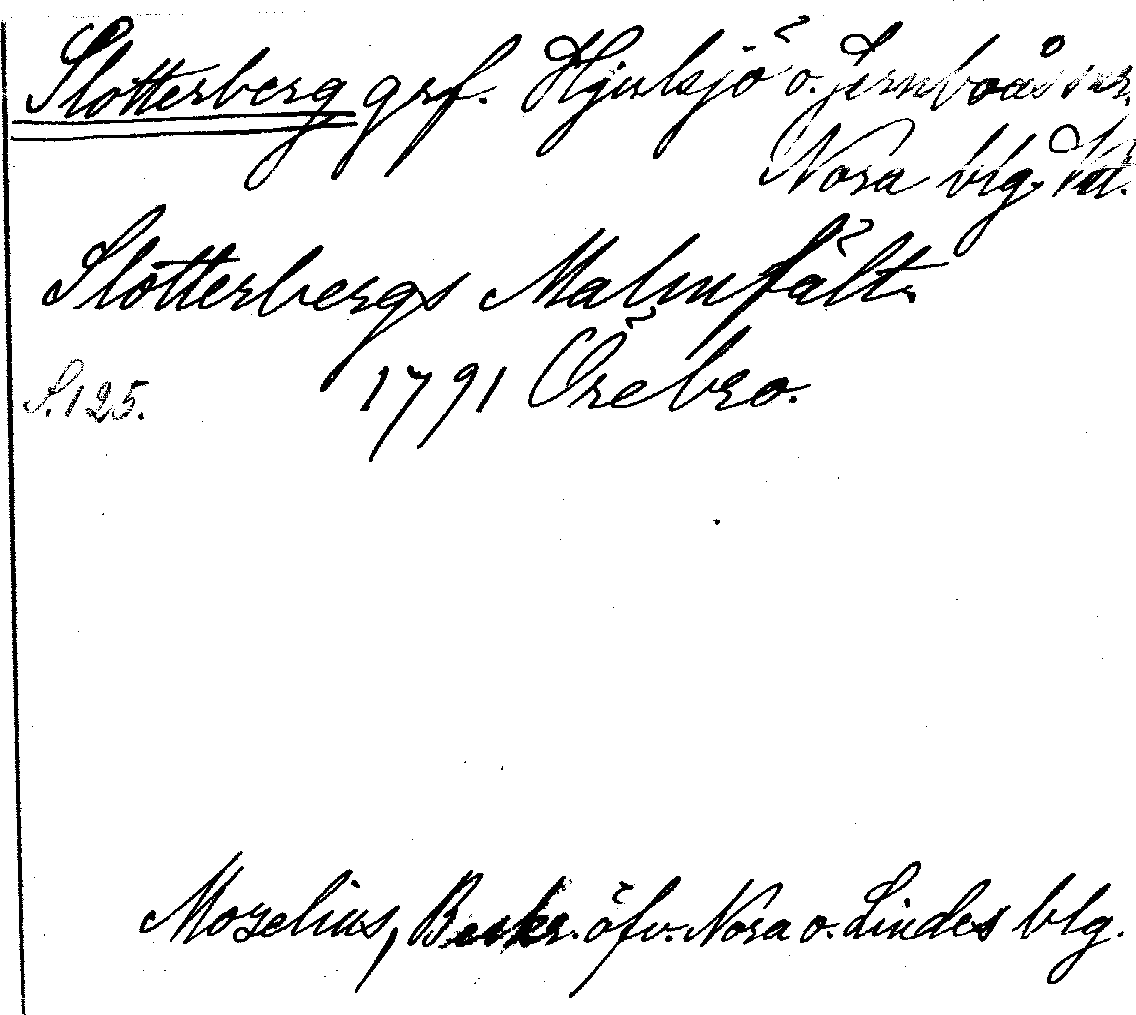 Slotterberg grf. Hjulsjö o. Jernboås snr.
Nora blg. Vnl.
Slotterbergs Malmfält.
S. 125. 1791 Örebro.
Mozelius, Beskr. öfv. Nora o. Lindes blg.